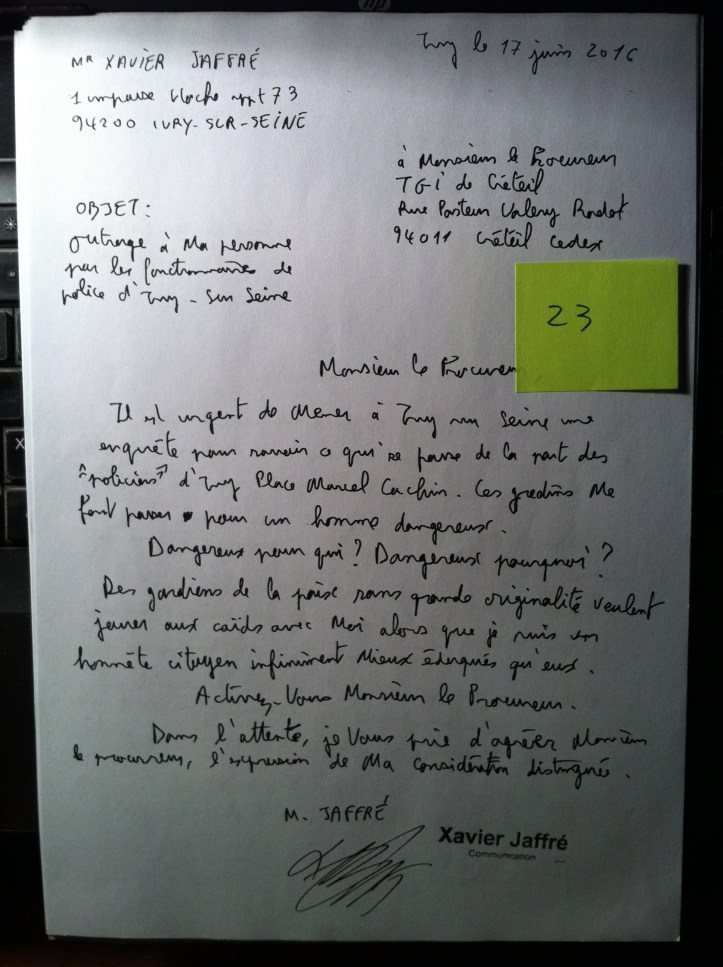 Mr XAVIER JAFFRÉ
Ivry le 17 juin 2016
1 impasse Hoche appt 73
94200 IVRY-SUR-SEINE
à Monsieur le Procureur
TGI de Créteil
Rue Pasteur Valery Radot
94011 Créteil Cedex
OBJET:
Outrage à Ma personne
par les fonctionnaires de
police d'Ivry-sur Seine
23
Monsieur le Procureur
Il est urgent de Mener à Ivry sur Seine une
enquête pour savoir ce qui se passe de la part des
"policiers" d'Ivry Place Marcel Cachin. Ces gredins Me
font passer pour un homme dangereux.
Dangereux pour qui ? Dangereux pourquoi ?
Des gardiens de la paix sans grande originalité veulent
jouer aux caïds avec Moi alors que je suis un
honnête citoyen infiniment Mieux éduqués qu'eux.
Activez-Vous Monsieur le Procureur.
Dans l'attente, je Vous prie d'agréer Monsieur
le procureur, l'expression de Ma considération distinguée.
M. JAFFRÉ
Xavier Jaffré
Communication
hp
X